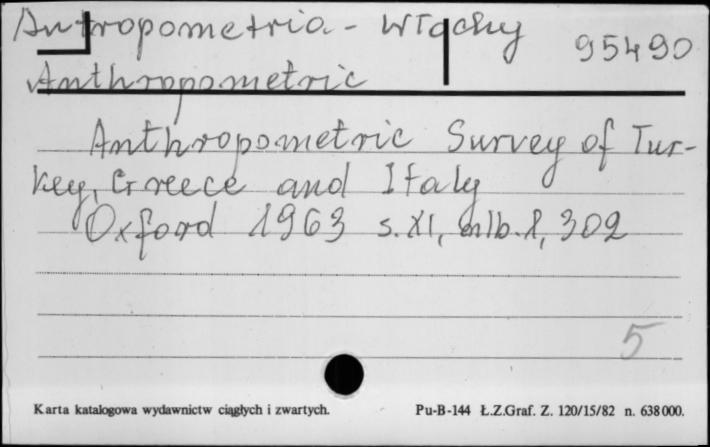 Antropometria - Włochy 95490
Anthropometric
Anthropometric Survey of Tur-
key, Greece and Italy
Oxford 1963 s. XI, nlb. 1, 302
5
Karta katalogowa wydawnictw ciągłych i zwartych. Pu-B-144 Ł.Z.Graf. Z. 120/15/82 n. 638000.